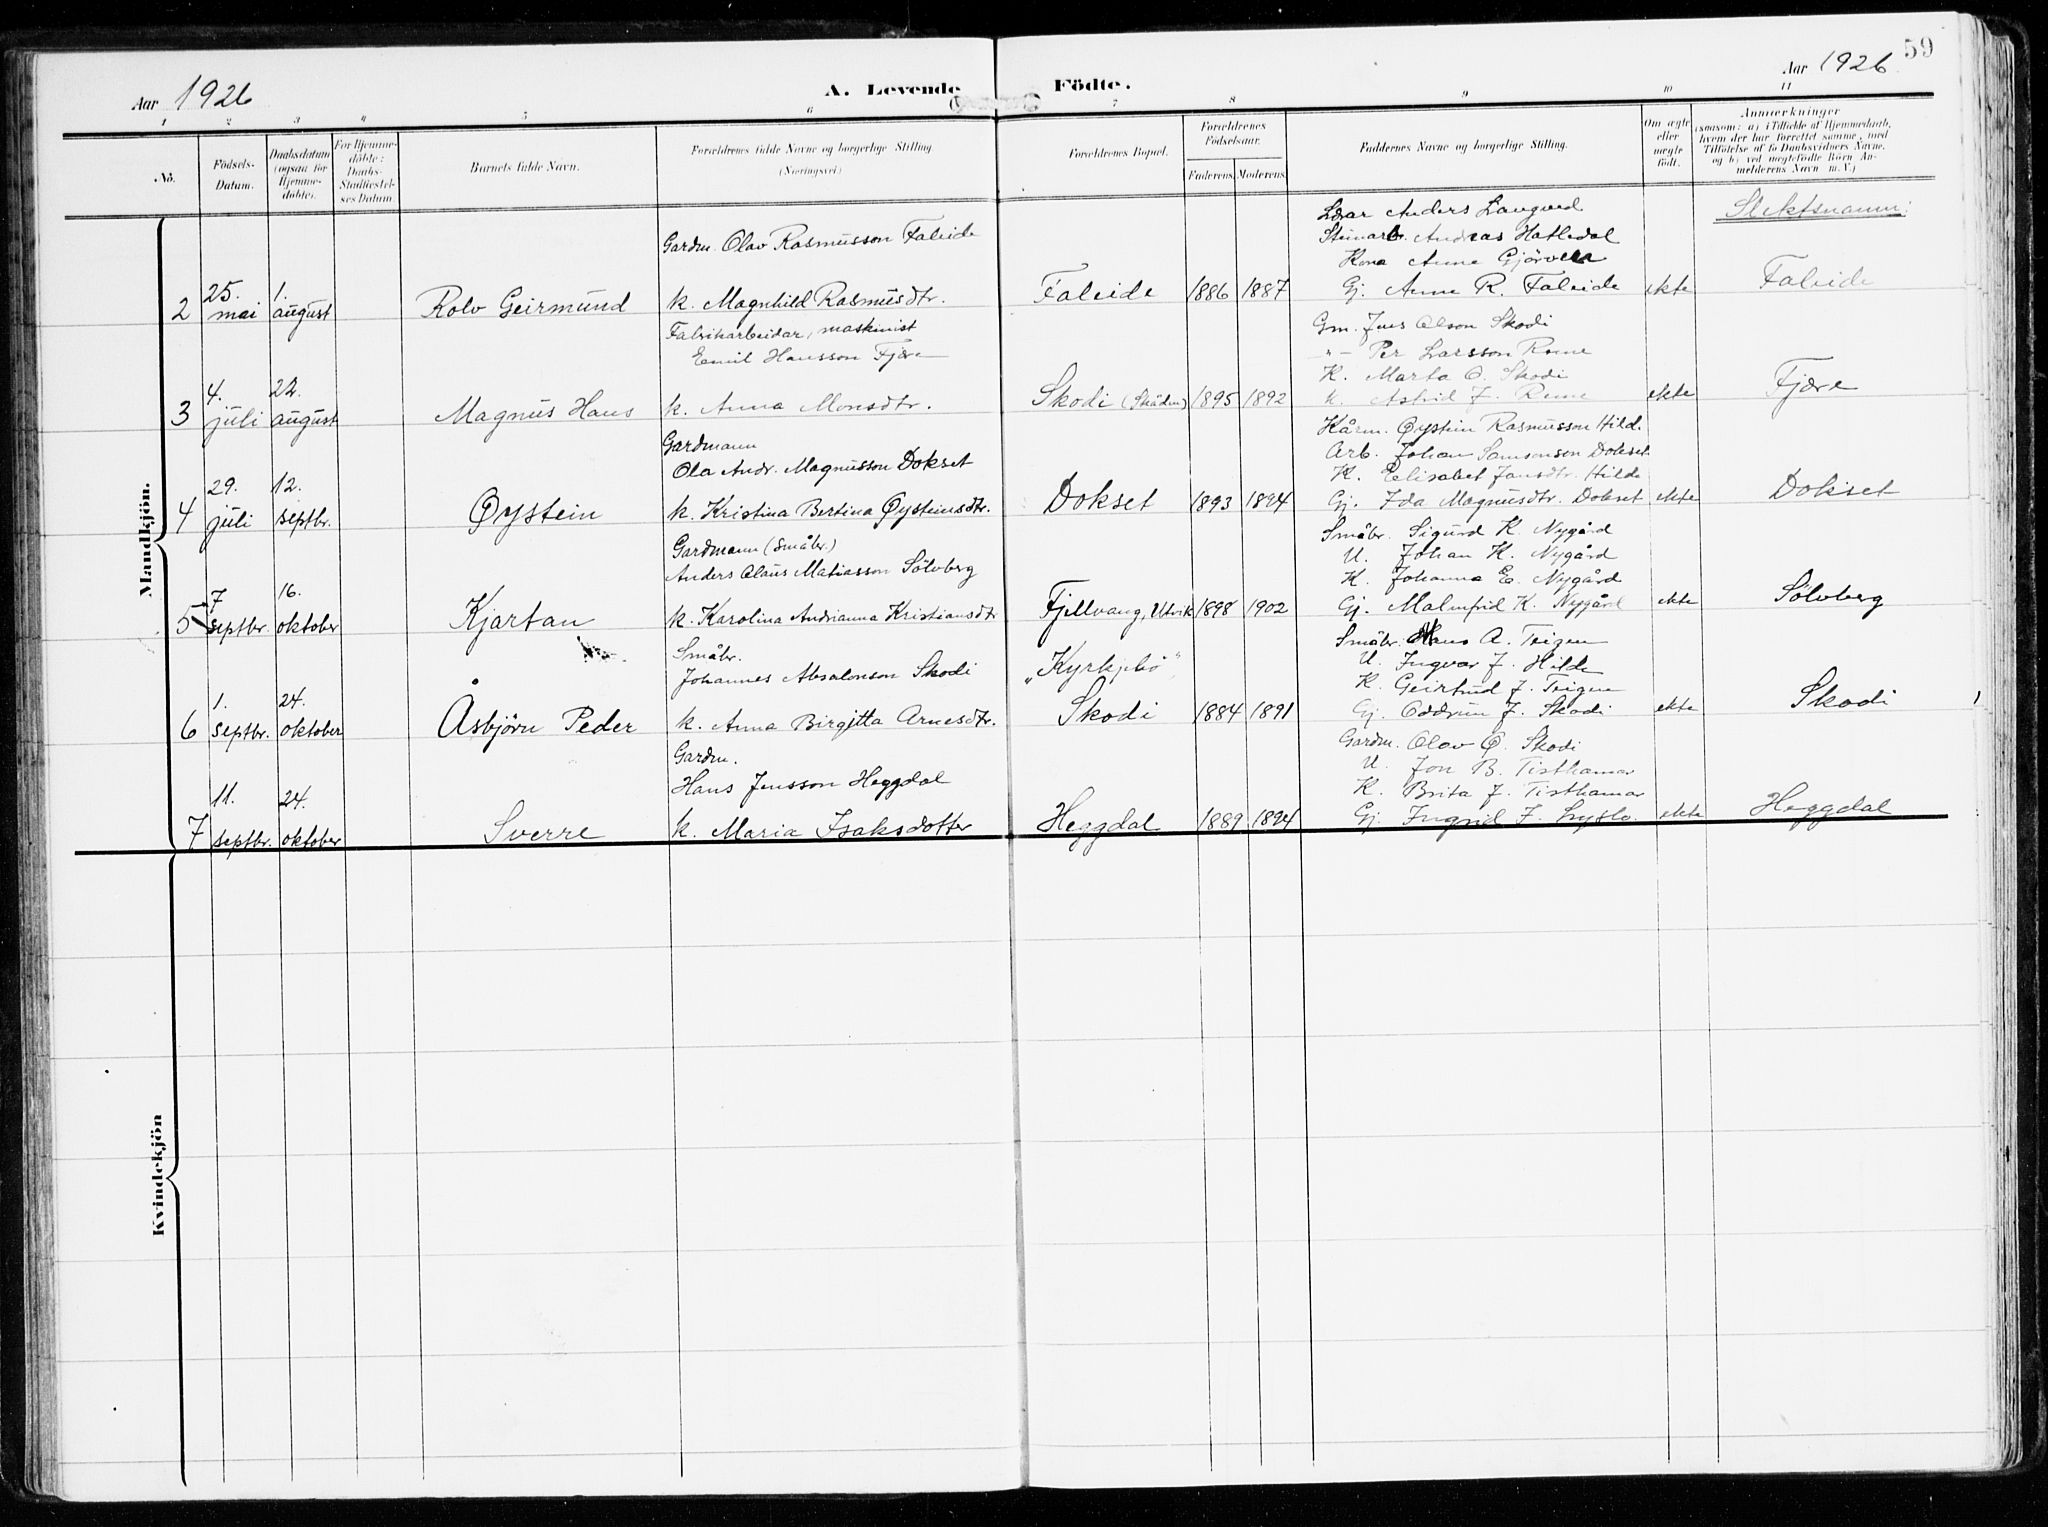 59
Aar 1926
A. Levende Födte.
Aar 1926
1 2 3 4 5 6 7 8 9 10 11
No.
Födsels-
Datum.
Daabsdatum
(ogsaa for
Hjemme-
döbte).
For Hjemme-
döbte:
Daabs-
Stadfæstel-
ses Datum.
Barnets fulde Navn.
Forældrenes fulde Navne og borgerlige Stilling
(Næringsvei)
Forældrenes Bopæl.
Forældrenes
Födselsaar.
Faderens. Moderens.
Faddernes Navne og borgerlige Stilling.
Om ægte
eller
uægte
födt.
Anmærkninger
(saasom: a) i Tilfælde af Hjemmedaab,
hvem der har forrettet samme, med
Tilföielse af to Daabsvidners Navne,
og b) ved uægtefödte Börn An-
melderens Navn m. V.)
Slektsnamn:
Mandkjön.
2
25.
mai
1.
august
Rolv Geirmund
Gardm. Olav Rasmusson Faleide
k. Magnhild Rasmusdtr.
Faleide
1886 1887
Lærar Anders Langved
Steinarb. Andreas Hatledal
Kona Anne Gjörven
Gj. Anne R. Faleide
ekte
Faleide
3
4.
juli
22.
august
Magnus Hans
Fabrikarbeidar, maskinist
Emil Hansson Fjære
k. Anna Monsdtr.
Skodi
1895 1892
Gm. Jens Olson Skodi
-"- Per Larsson Reme
K. Marta O. Skodi
k. Astrid J. Reme
ekte
Fjære
4
29.
juli
12.
septbr.
Øystein
Gardmann
Ola Andr. Magnusson Dokset
k. Kristina Bertina Øysteinsdtr.
Dokset
1893 1894
Kårm. Øystein Rasmusson Hilde
Arb. Johan Samsonson Dokset
K. Elisabet Jansdtr. Hilde
Gj. Ida Magnusdtr. Dokset
ekte
Dokset
5
7
septbr.
16.
oktober
Kjartan
Gardmann (småbr.)
Anders Olaus Matiasson Sölvberg
k. Karolina Andrianna Kristiansdtr
Fjellvang, Utvik
1898 1902
Småbr. Sigurd K. Nygård
U. Johan K. Nygård
K. Johanna E. Nygård
Gj. Malmfrid K. Nygård
ekte
Sölvberg
6
1.
septbr.
24.
oktober
Åsbjörn Peder
Småbr.
Johannes Absalonson Skodi
k. Anna Birgitta Arnesdtr.
„Kyrkjebö"
Skodi
1884 1891
Småbr. Hans A. Teigen
U. Ingvar J. Hilde
K. Geirtrud J. Teigen
Gj. Oddrun J. Skodi
ekte
Skodi
7
11.
septbr.
24.
oktober
Sverre
Gardm.
Hans Jensson Heggdal
k. Maria Isaksdotter
Heggdal
1889 1894
Gardm. Olav Ø. Skodi
U. Jon B. Tisthamar
K. Brita J. Tisthamar
Gj. Ingrid J. Lyslo
ekte
Heggdal
Kvindekjön